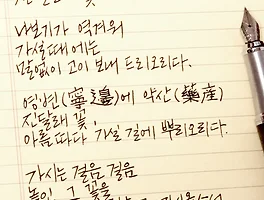 나보기가 역겨워
가실때 에는
말없이 고이 보내 드리오리다.
영변(寧邊)에 약산(藥産)
진달래 꽃,
아름따다 가실 길에 뿌리오리다.
가시는 걸음 걸음
놓인 그 꽃을